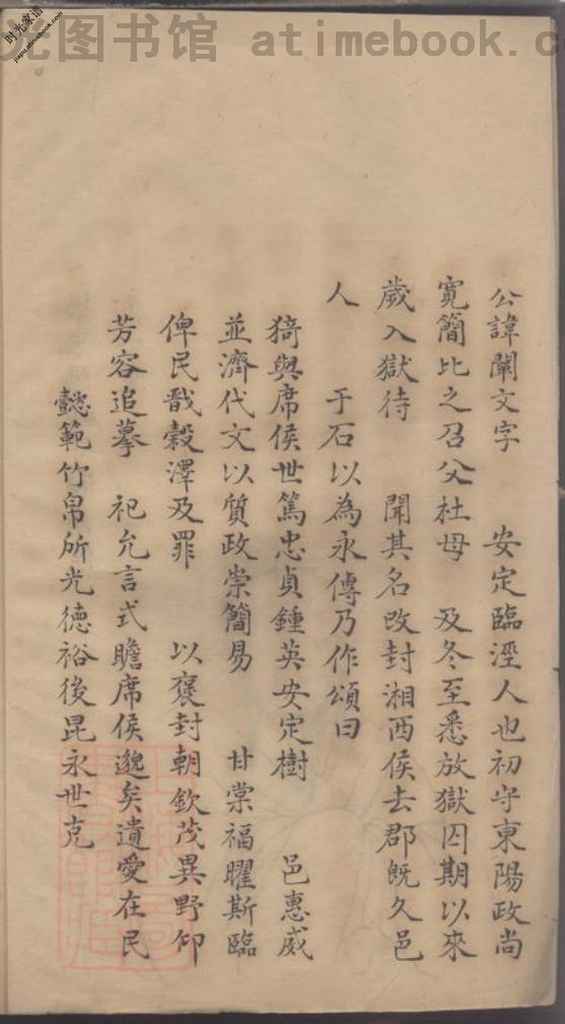 时光家谱
光图书馆 atimebook.c
公諱闡文字 安定臨涇人也初守東陽政尚
寬簡比之召父杜母 及冬至悉放獄囚期以來
歲入獄待 聞其名改封湘西侯去郡既久邑
人 于石以為永傳乃作頌曰
猗與席侯世篤忠貞鍾英安定樹 邑惠威
並濟代文以質政崇簡易 甘棠福曜斯臨
俾民戩榖澤及罪 以褒封朝欽茂異野仰
芳容追摹 祀允言式瞻席侯邈矣遺愛在民
懿範竹帛所光德裕後昆永世克